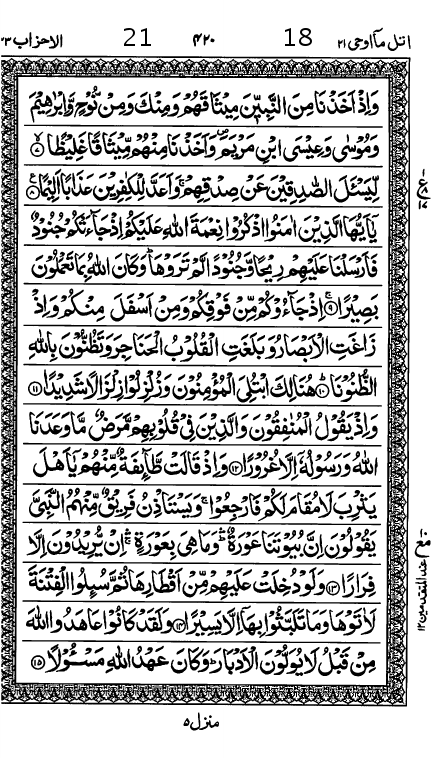 اتل ماۤ اوحی ۲۱ 18 ۴۲۰ 21 الاحزاب ۳۳
وَاِذْ اَخَذْنَا مِنَ النَّبِيّٖنَ مِيْثَاقَهُمْ وَمِنْكَ وَمِنْ نُّوْحٍ وَّاِبْرٰهِيْمَ
وَمُوْسٰى وَعِيْسَى ابْنِ مَرْيَمَ ۖ وَاَخَذْنَا مِنْهُمْ مِّيْثَاقًا غَلِيْظًا ۙ‏﴿۷﴾
لِّيَسْئَلَ الصّٰدِقِيْنَ عَنْ صِدْقِهِمْ ۚ وَاَعَدَّ لِلْكٰفِرِيْنَ عَذَابًا اَلِيْمًا ﴿۸﴾
يٰۤاَيُّهَا الَّذِيْنَ اٰمَنُوا اذْكُرُوْا نِعْمَةَ اللّٰهِ عَلَيْكُمْ اِذْ جَآءَتْكُمْ جُنُوْدٌ
فَاَرْسَلْنَا عَلَيْهِمْ رِيْحًا وَّجُنُوْدًا لَّمْ تَرَوْهَا ؕ وَكَانَ اللّٰهُ بِمَا تَعْمَلُوْنَ
بَصِيْرًا ۚ ﴿۹﴾ اِذْ جَآءُوْكُمْ مِّنْ فَوْقِكُمْ وَمِنْ اَسْفَلَ مِنْكُمْ وَاِذْ
زَاغَتِ الْاَبْصَارُ وَبَلَغَتِ الْقُلُوْبُ الْحَنَاجِرَ وَتَظُنُّوْنَ بِاللّٰهِ
الظُّنُوْنَا ؕ ﴿۱۰﴾ هُنَالِكَ ابْتُلِيَ الْمُؤْمِنُوْنَ وَزُلْزِلُوْا زِلْزَالًا شَدِيْدًا ﴿۱۱﴾
وَاِذْ يَقُوْلُ الْمُنٰفِقُوْنَ وَالَّذِيْنَ فِيْ قُلُوْبِهِمْ مَّرَضٌ مَّا وَعَدَنَا
اللّٰهُ وَرَسُوْلُهٗۤ اِلَّا غُرُوْرًا ﴿۱۲﴾ وَاِذْ قَالَتْ طَّآئِفَةٌ مِّنْهُمْ يٰۤاَهْلَ
يَثْرِبَ لَا مُقَامَ لَكُمْ فَارْجِعُوْا ۚ وَيَسْتَاْذِنُ فَرِيْقٌ مِّنْهُمُ النَّبِيَّ
يَقُوْلُوْنَ اِنَّ بُيُوْتَنَا عَوْرَةٌ ۛؕ وَمَا هِيَ بِعَوْرَةٍ ۛۚ اِنْ يُّرِيْدُوْنَ اِلَّا
فِرَارًا ﴿۱۳﴾ وَلَوْ دُخِلَتْ عَلَيْهِمْ مِّنْ اَقْطَارِهَا ثُمَّ سُئِلُوا الْفِتْنَةَ
لَاٰتَوْهَا وَمَا تَلَبَّثُوْا بِهَاۤ اِلَّا يَسِيْرًا ﴿۱۴﴾ وَلَقَدْ كَانُوْا عَاهَدُوا اللّٰهَ
مِنْ قَبْلُ لَا يُوَلُّوْنَ الْاَدْبَارَ ؕ وَكَانَ عَهْدُ اللّٰهِ مَسْئُوْلًا ﴿۱۵﴾
منزل ۵